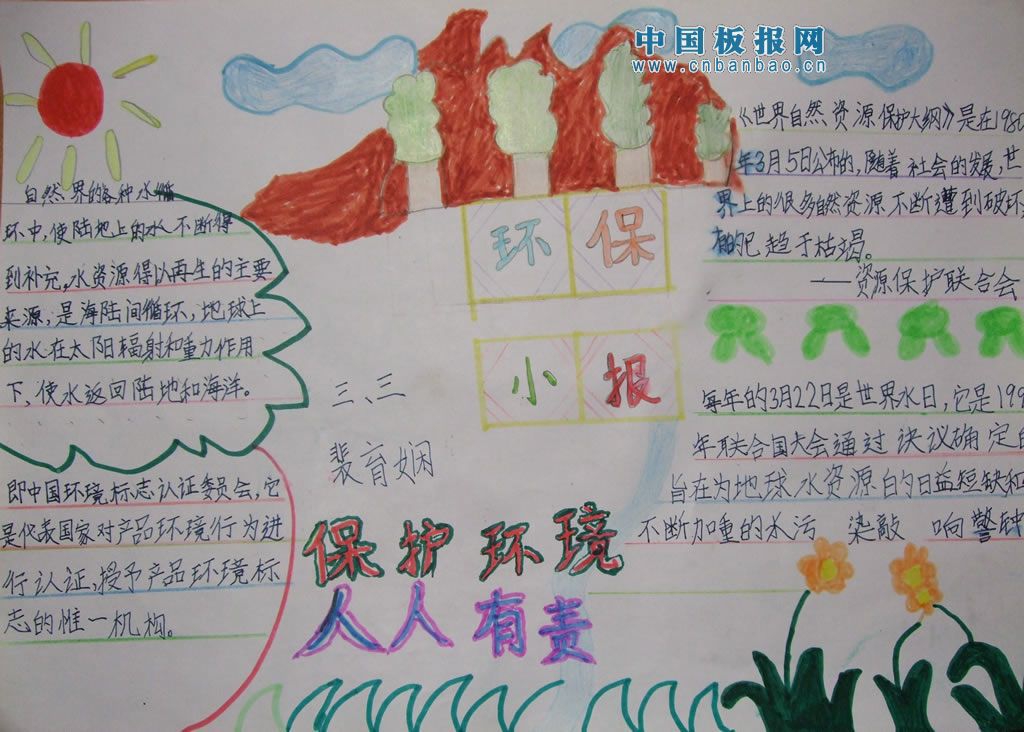 中国板报网
www.cnbanbao.cn
自然界的各种水循
环中,使陆地上的水不断得
到补充,水资源得以再生的主要
来源,是海陆间循环,地球上
的水在太阳辐射和重力作用
下,使水返回陆地和海洋。
即中国环境标志认证委员会,它
是代表国家对产品环境行为进
行认证,授予产品环境标
志的惟一机构。
环保
小报
三、三
裴育娴
保护环境
人人有责
《世界自然资源保护大纲》是在1980
年3月5日公布的,随着社会的发展,世
界上的很多自然资源不断遭到破坏
有的已趋于枯竭。
——资源保护联合会
每年的3月22日是世界水日,它是199
年联合国大会通过决议确定的
旨在为地球水资源的日益短缺和
不断加重的水污 染敲 响警钟